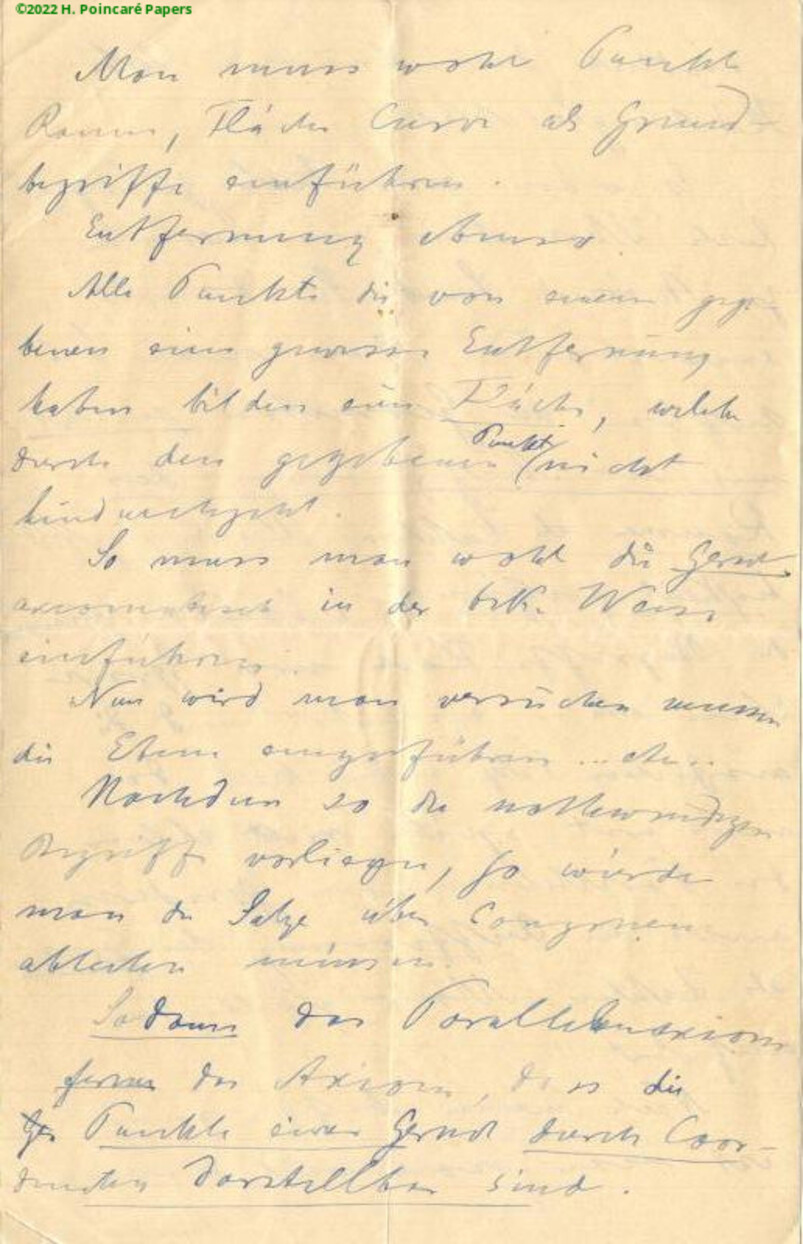 ©2022 H. Poincaré Papers
Man muss wohl Punkt
Raum, Fläche Curve als Grund-
begriffe einführen.
Entfernung ebenso.
Alle Punkte die von einem gege-
benen eine gewisse Entfernung
haben bilden eine Fläche, welche
durch den gegebenen Punkt nicht
hindurchgeht.
So muss man wohl die Gerade
axiomatisch in der bek. Weise
einführen.
Nun wird man versuchen müssen
die Ebene einzuführen ... etc..
Nachdem so die nothwendigen
Begriffe vorliegen, so würde
man die Sätze über Congruenz
ableiten müssen.
Sodann das Parallelenaxiom
ferner das Axiom, dass die
Punkte einer Gerade durch Coor-
dinaten darstellbar sind.